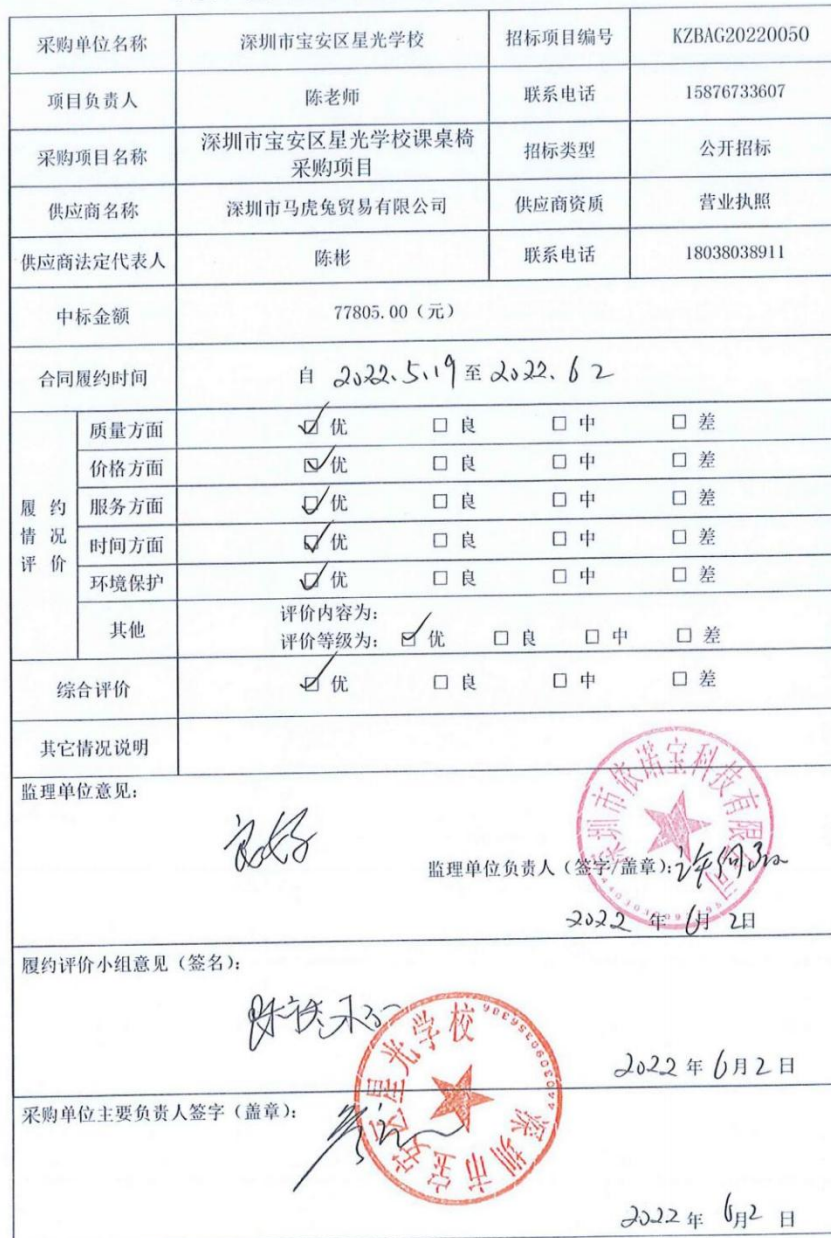 采购单位名称 深圳市宝安区星光学校 招标项目编号 KZBAG20220050
项目负责人 陈老师 联系电话 15876733607
采购项目名称 深圳市宝安区星光学校课桌椅采购项目 招标类型 公开招标
供应商名称 深圳市马虎兔贸易有限公司 供应商资质 营业执照
供应商法定代表人 陈彬 联系电话 18038038911
中标金额 77805.00（元）
合同履约时间 自 2022.5.19 至 2022.6 2
履约情况评价
质量方面 ☑ 优 □ 良 □ 中 □ 差
价格方面 ☑ 优 □ 良 □ 中 □ 差
服务方面 ☑ 优 □ 良 □ 中 □ 差
时间方面 ☑ 优 □ 良 □ 中 □ 差
环境保护 ☑ 优 □ 良 □ 中 □ 差
其他 评价内容为：
评价等级为： ☑ 优 □ 良 □ 中 □ 差
综合评价 ☑ 优 □ 良 □ 中 □ 差
其它情况说明
监理单位意见：
良好
深圳市依诺宝科技有限公司
监理单位负责人（签字/盖章）：
2022 年 6月 2日
履约评价小组意见（签名）：
2022 年 6月 2 日
深圳市宝安区星光学校
采购单位主要负责人签字（盖章）：
2022 年 6月2 日